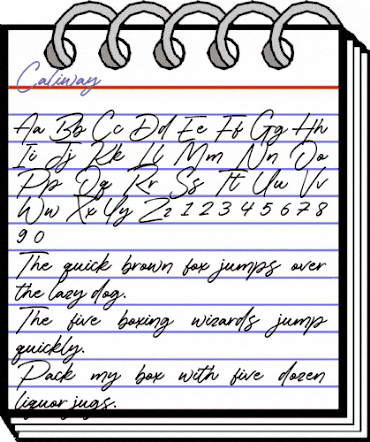 Caliway
Aa Bb Cc Dd Ee Ff Gg Hh
Ii Jj Kk Ll Mm Nn Oo
Pp Qq Rr Ss Tt Uu Vv
Ww Xx Yy Zz 1 2 3 4 5 6 7 8
9 0
The quick brown fox jumps over
the lazy dog.
The five boxing wizards jump
quickly.
Pack my box with five dozen
liquor jugs.